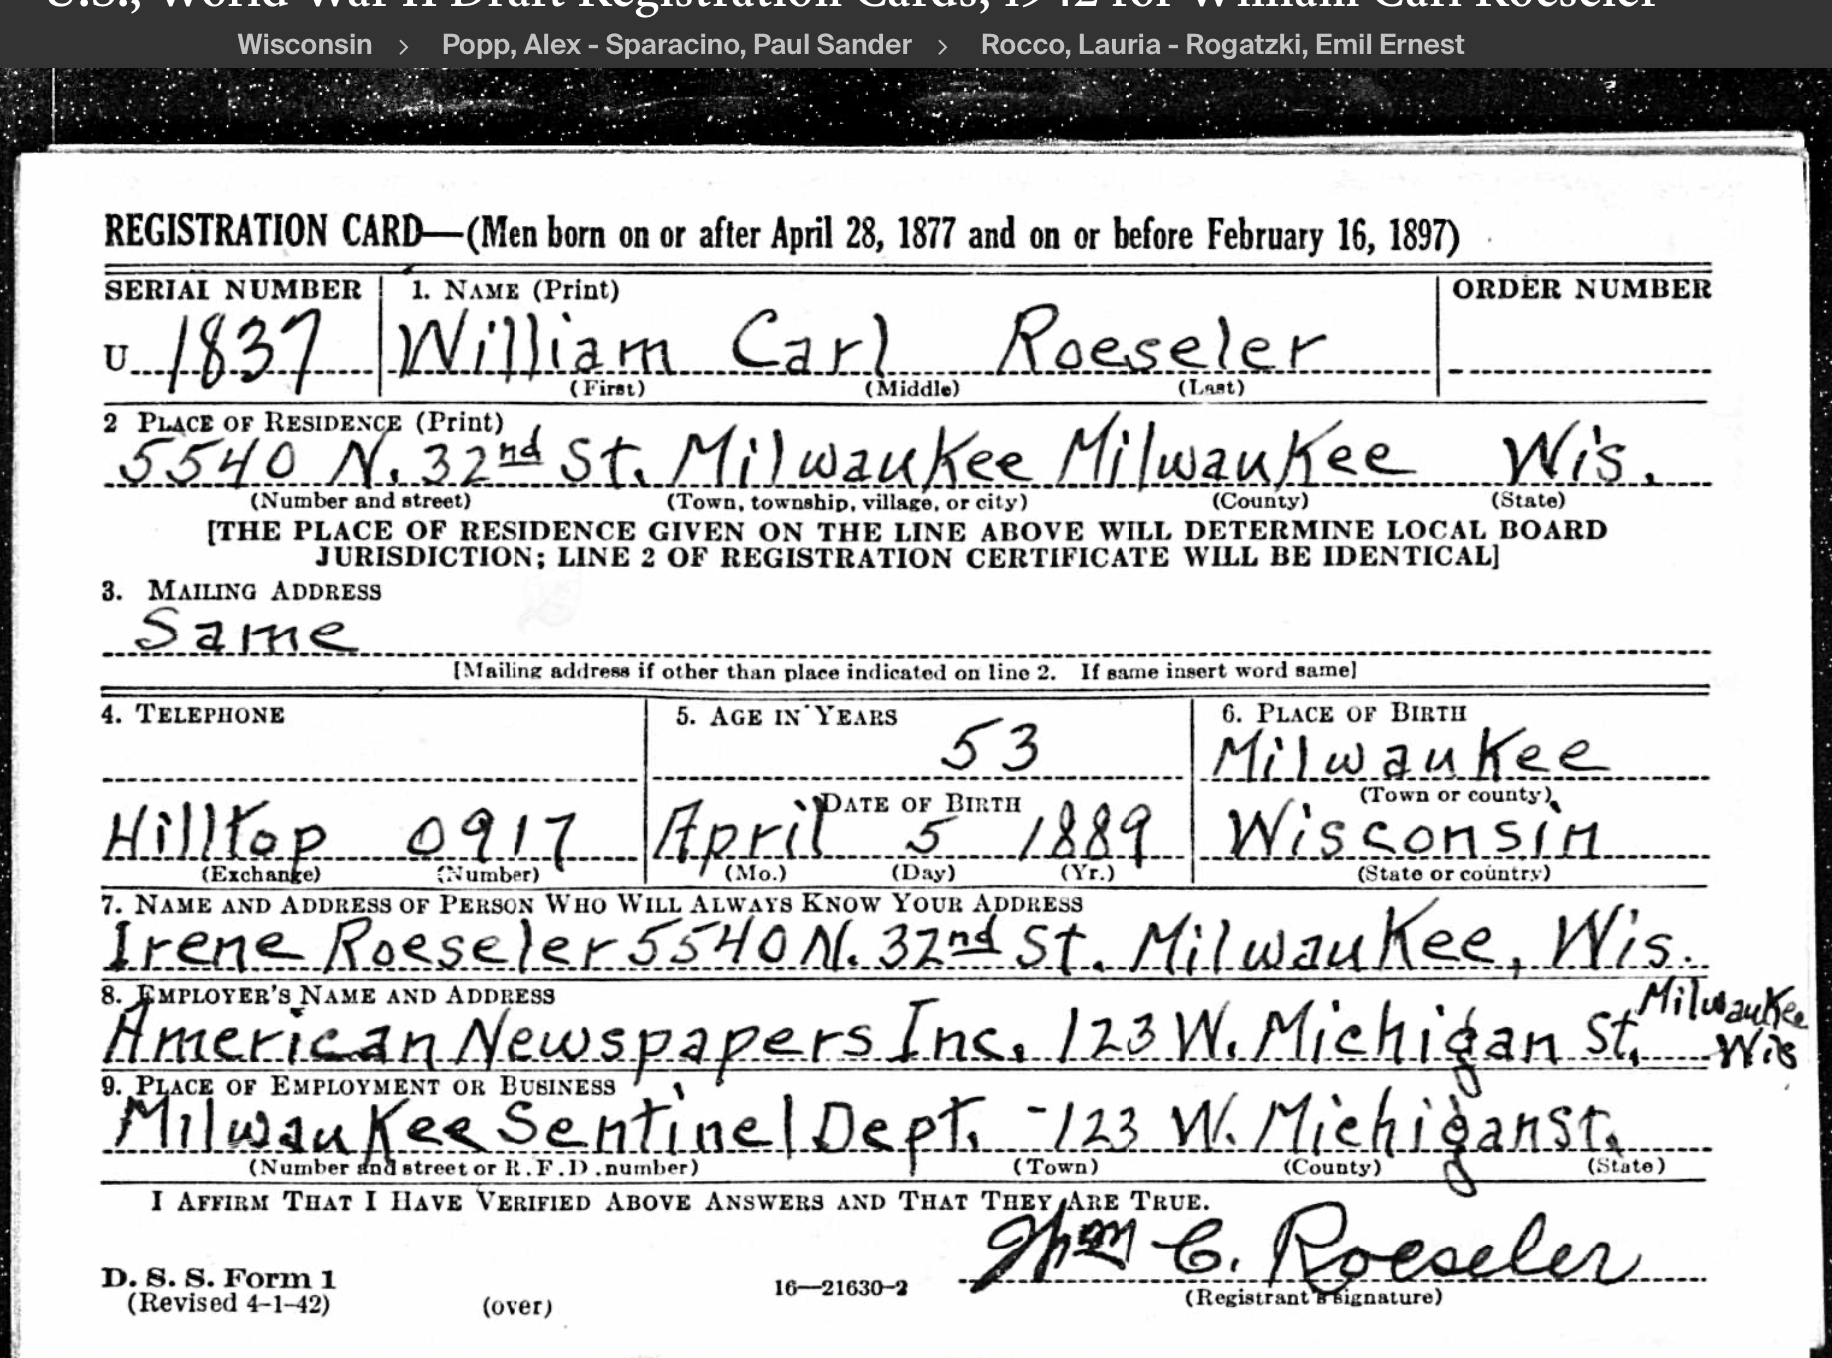 U.S., World War II Draft Registration Cards, 1942 for William Carl Roeseler
Wisconsin > Popp, Alex - Sparacino, Paul Sander > Rocco, Lauria - Rogatzki, Emil Ernest
REGISTRATION CARD—(Men born on or after April 28, 1877 and on or before February 16, 1897)
SERIAL NUMBER 1. NAME (Print) ORDER NUMBER
U 1837 William Carl Roeseler
(First) (Middle) (Last)
2 PLACE OF RESIDENCE (Print)
5540 N. 32nd St. Milwaukee Milwaukee Wis.
(Number and street) (Town, township, village, or city) (County) (State)
[THE PLACE OF RESIDENCE GIVEN ON THE LINE ABOVE WILL DETERMINE LOCAL BOARD
JURISDICTION; LINE 2 OF REGISTRATION CERTIFICATE WILL BE IDENTICAL]
3. MAILING ADDRESS
Same
[Mailing address if other than place indicated on line 2. If same insert word same]
4. TELEPHONE 5. AGE IN YEARS 6. PLACE OF BIRTH
53 Milwaukee
DATE OF BIRTH (Town or county)
Hilltop 0917 April 5 1889 Wisconsin
(Exchange) (Number) (Mo.) (Day) (Yr.) (State or country)
7. NAME AND ADDRESS OF PERSON WHO WILL ALWAYS KNOW YOUR ADDRESS
Irene Roeseler 5540 N. 32nd St. Milwaukee, Wis.
8. EMPLOYER'S NAME AND ADDRESS
American Newspapers Inc. 123 W. Michigan St. Milwaukee Wis
9. PLACE OF EMPLOYMENT OR BUSINESS
Milwaukee Sentinel Dept. - 123 W. Michigan St.
(Number and street or R.F.D. number) (Town) (County) (State)
I AFFIRM THAT I HAVE VERIFIED ABOVE ANSWERS AND THAT THEY ARE TRUE.
Wm C. Roeseler
D. S. S. Form 1
(Revised 4-1-42) (over) 16—21630-2 (Registrant's signature)